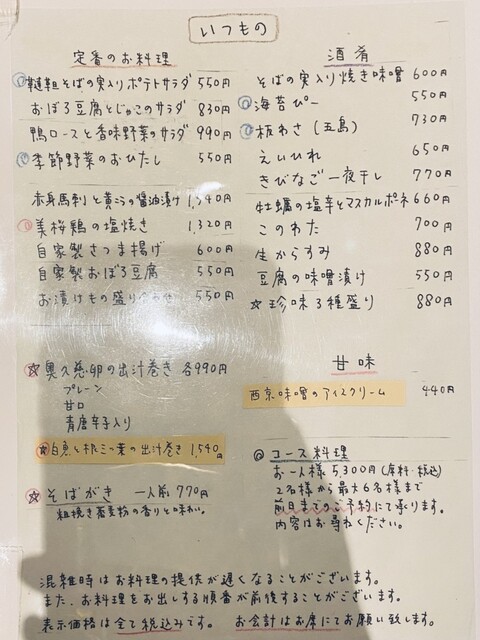 いつもの
定番のお料理
韃靼そばの実入りポテトサラダ 550円
おぼろ豆腐とじゃこのサラダ 830円
鴨ロースと香味野菜のサラダ 990円
季節野菜のおひたし 550円
赤身馬刺と黄ニラの醤油漬け 1,340円
美桜鶏の塩焼き 1,320円
自家製さつま揚げ 600円
自家製おぼろ豆腐 550円
お漬けもの盛り合わせ 550円
☆奥久慈卵の出汁巻き 各990円
プレーン
甘口
青唐辛子入り
★白魚と根三つ葉の出汁巻き 1,540円
☆そばがき 一人前 770円
粗挽き蕎麦粉の香りと味わい。
酒肴
そばの実入り焼き味噌 600円
海苔ぴー 550円
板わさ(五島) 730円
えいひれ 650円
きびなご一夜干し 770円
牡蠣の塩辛とマスカルポーネ 660円
このわた 700円
生からすみ 880円
豆腐の味噌漬け 550円
☆珍味3種盛り 880円
甘味
西京味噌のアイスクリーム 440円
◎コース料理
お一人様 5,300円(席料・税込)
2名様から最大6名様まで
前日までのご予約にて承ります。
内容はお尋ねください。
混雑時はお料理の提供が遅くなることがございます。
また、お料理をお出しする順番が前後することがございます。
表示価格は全て税込みです。 お会計はお席にてお願い致します。